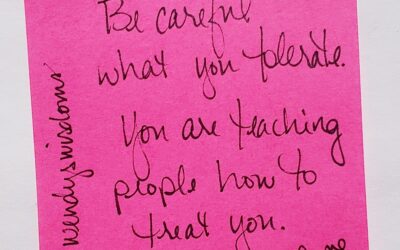 Be careful
what you tolerate.
You are teaching
people how to
treat you.
wendyswisdoms